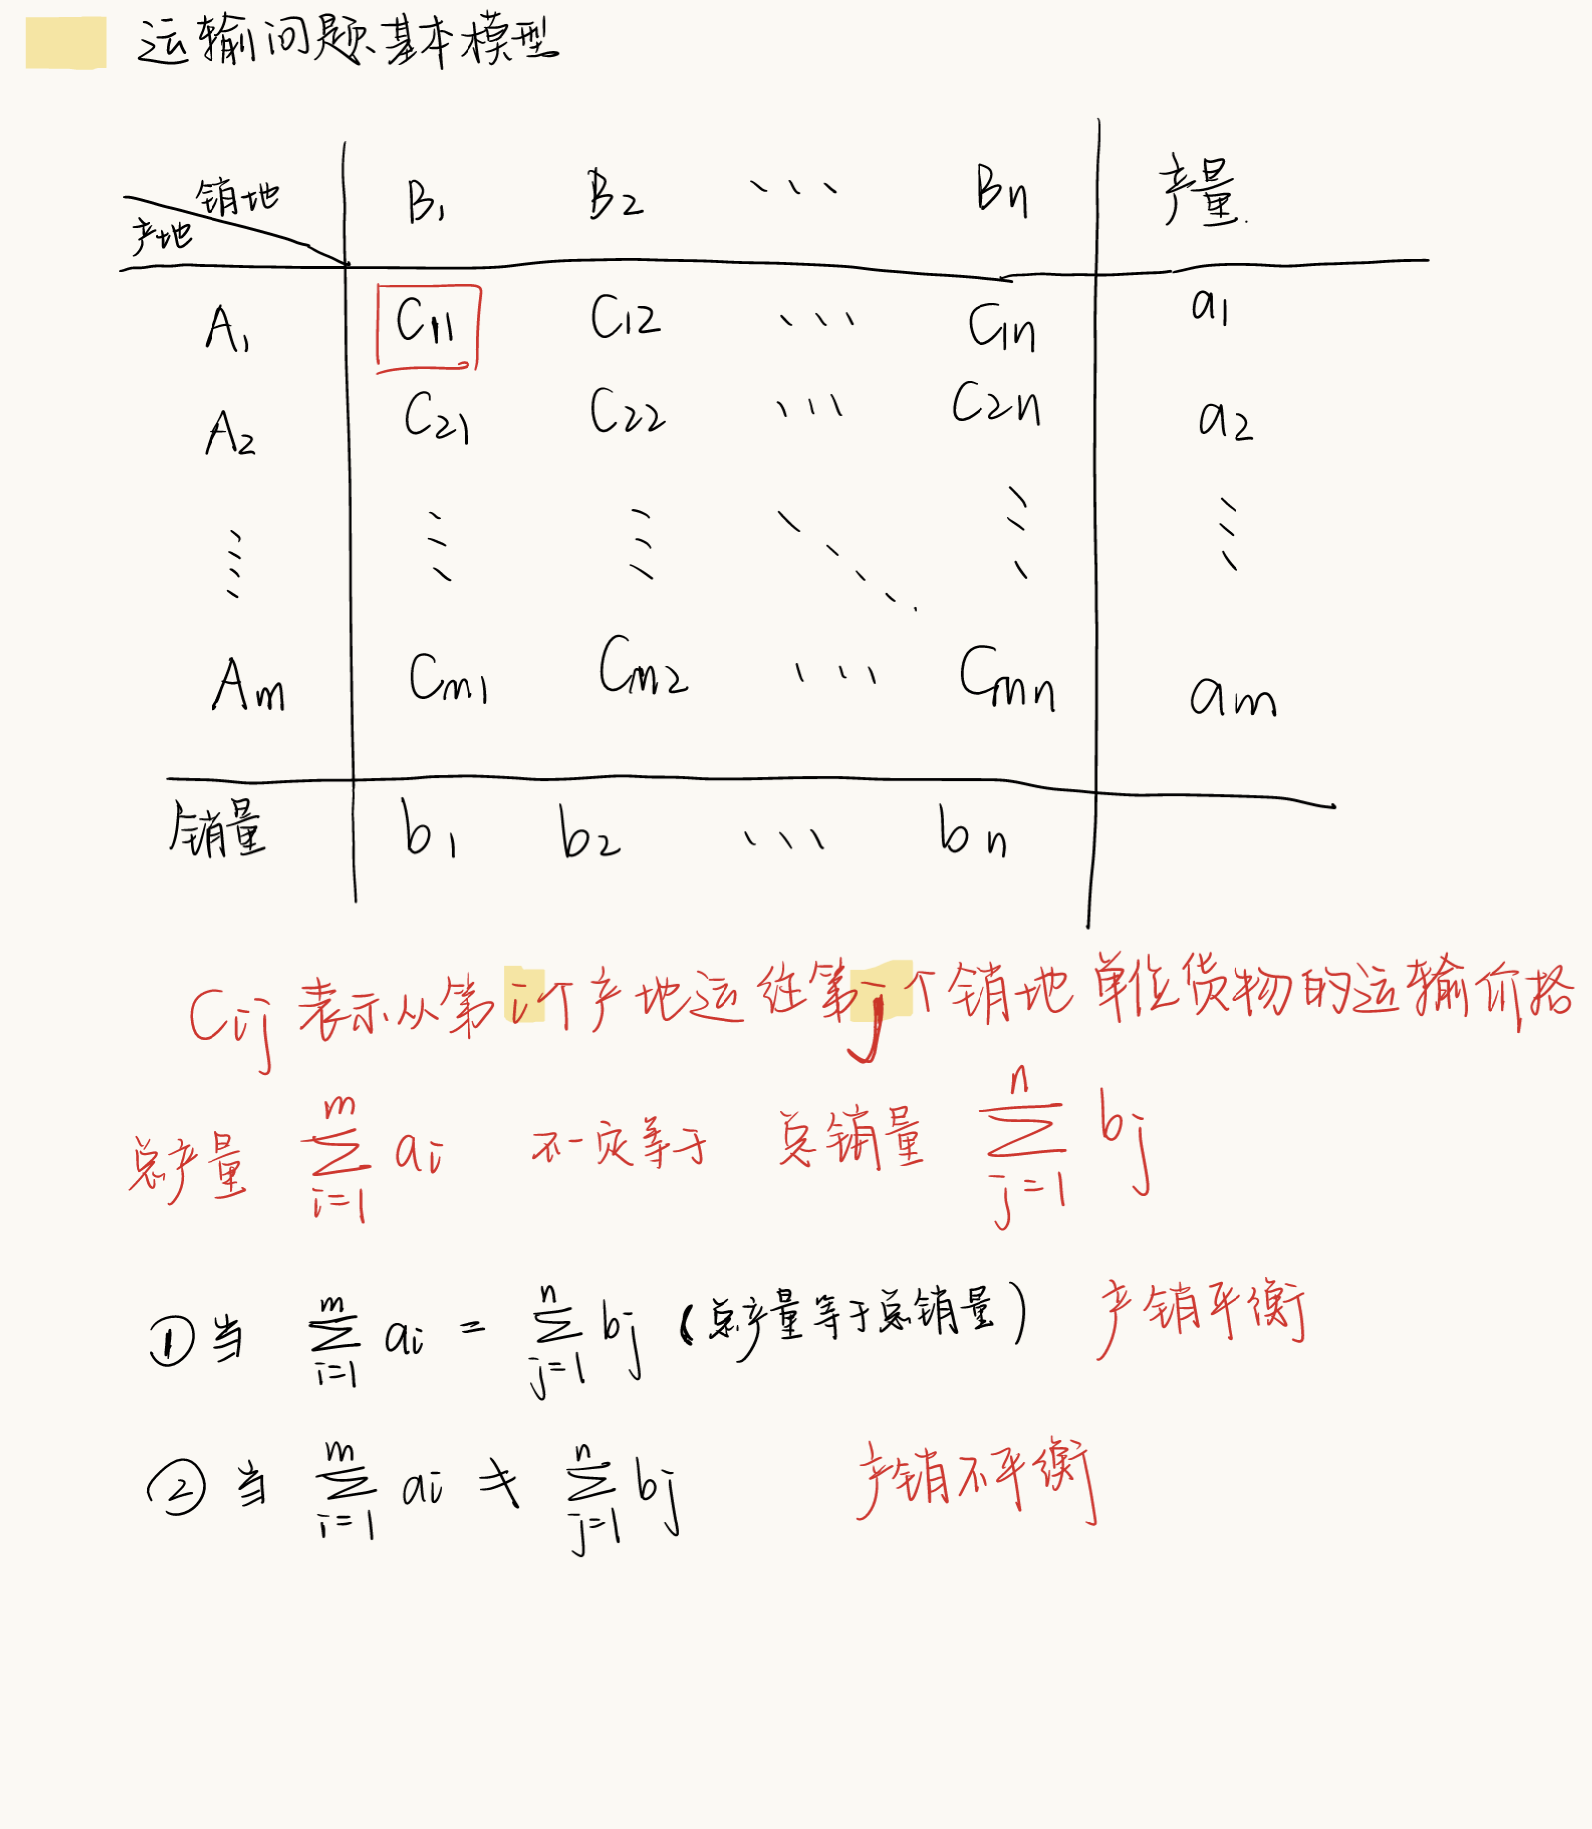 运输问题基本模型
销地 B₁ B₂ ⋯ Bn 产量
产地
A₁ C₁₁ C₁₂ ⋯ C₁n a₁
A₂ C₂₁ C₂₂ ⋯ C₂n a₂
⋮ ⋮ ⋮ ⋱ ⋮ ⋮
Am Cm₁ Cm₂ ⋯ Cmn am
销量 b₁ b₂ ⋯ bn
Cij 表示从第i个产地运往第j个销地单位货物的运输价格
总产量 ∑_{i=1}^{m} ai 不一定等于 总销量 ∑_{j=1}^{n} bj
①当 ∑_{i=1}^{m} ai = ∑_{j=1}^{n} bj (总产量等于总销量) 产销平衡
②当 ∑_{i=1}^{m} ai ≠ ∑_{j=1}^{n} bj 产销不平衡